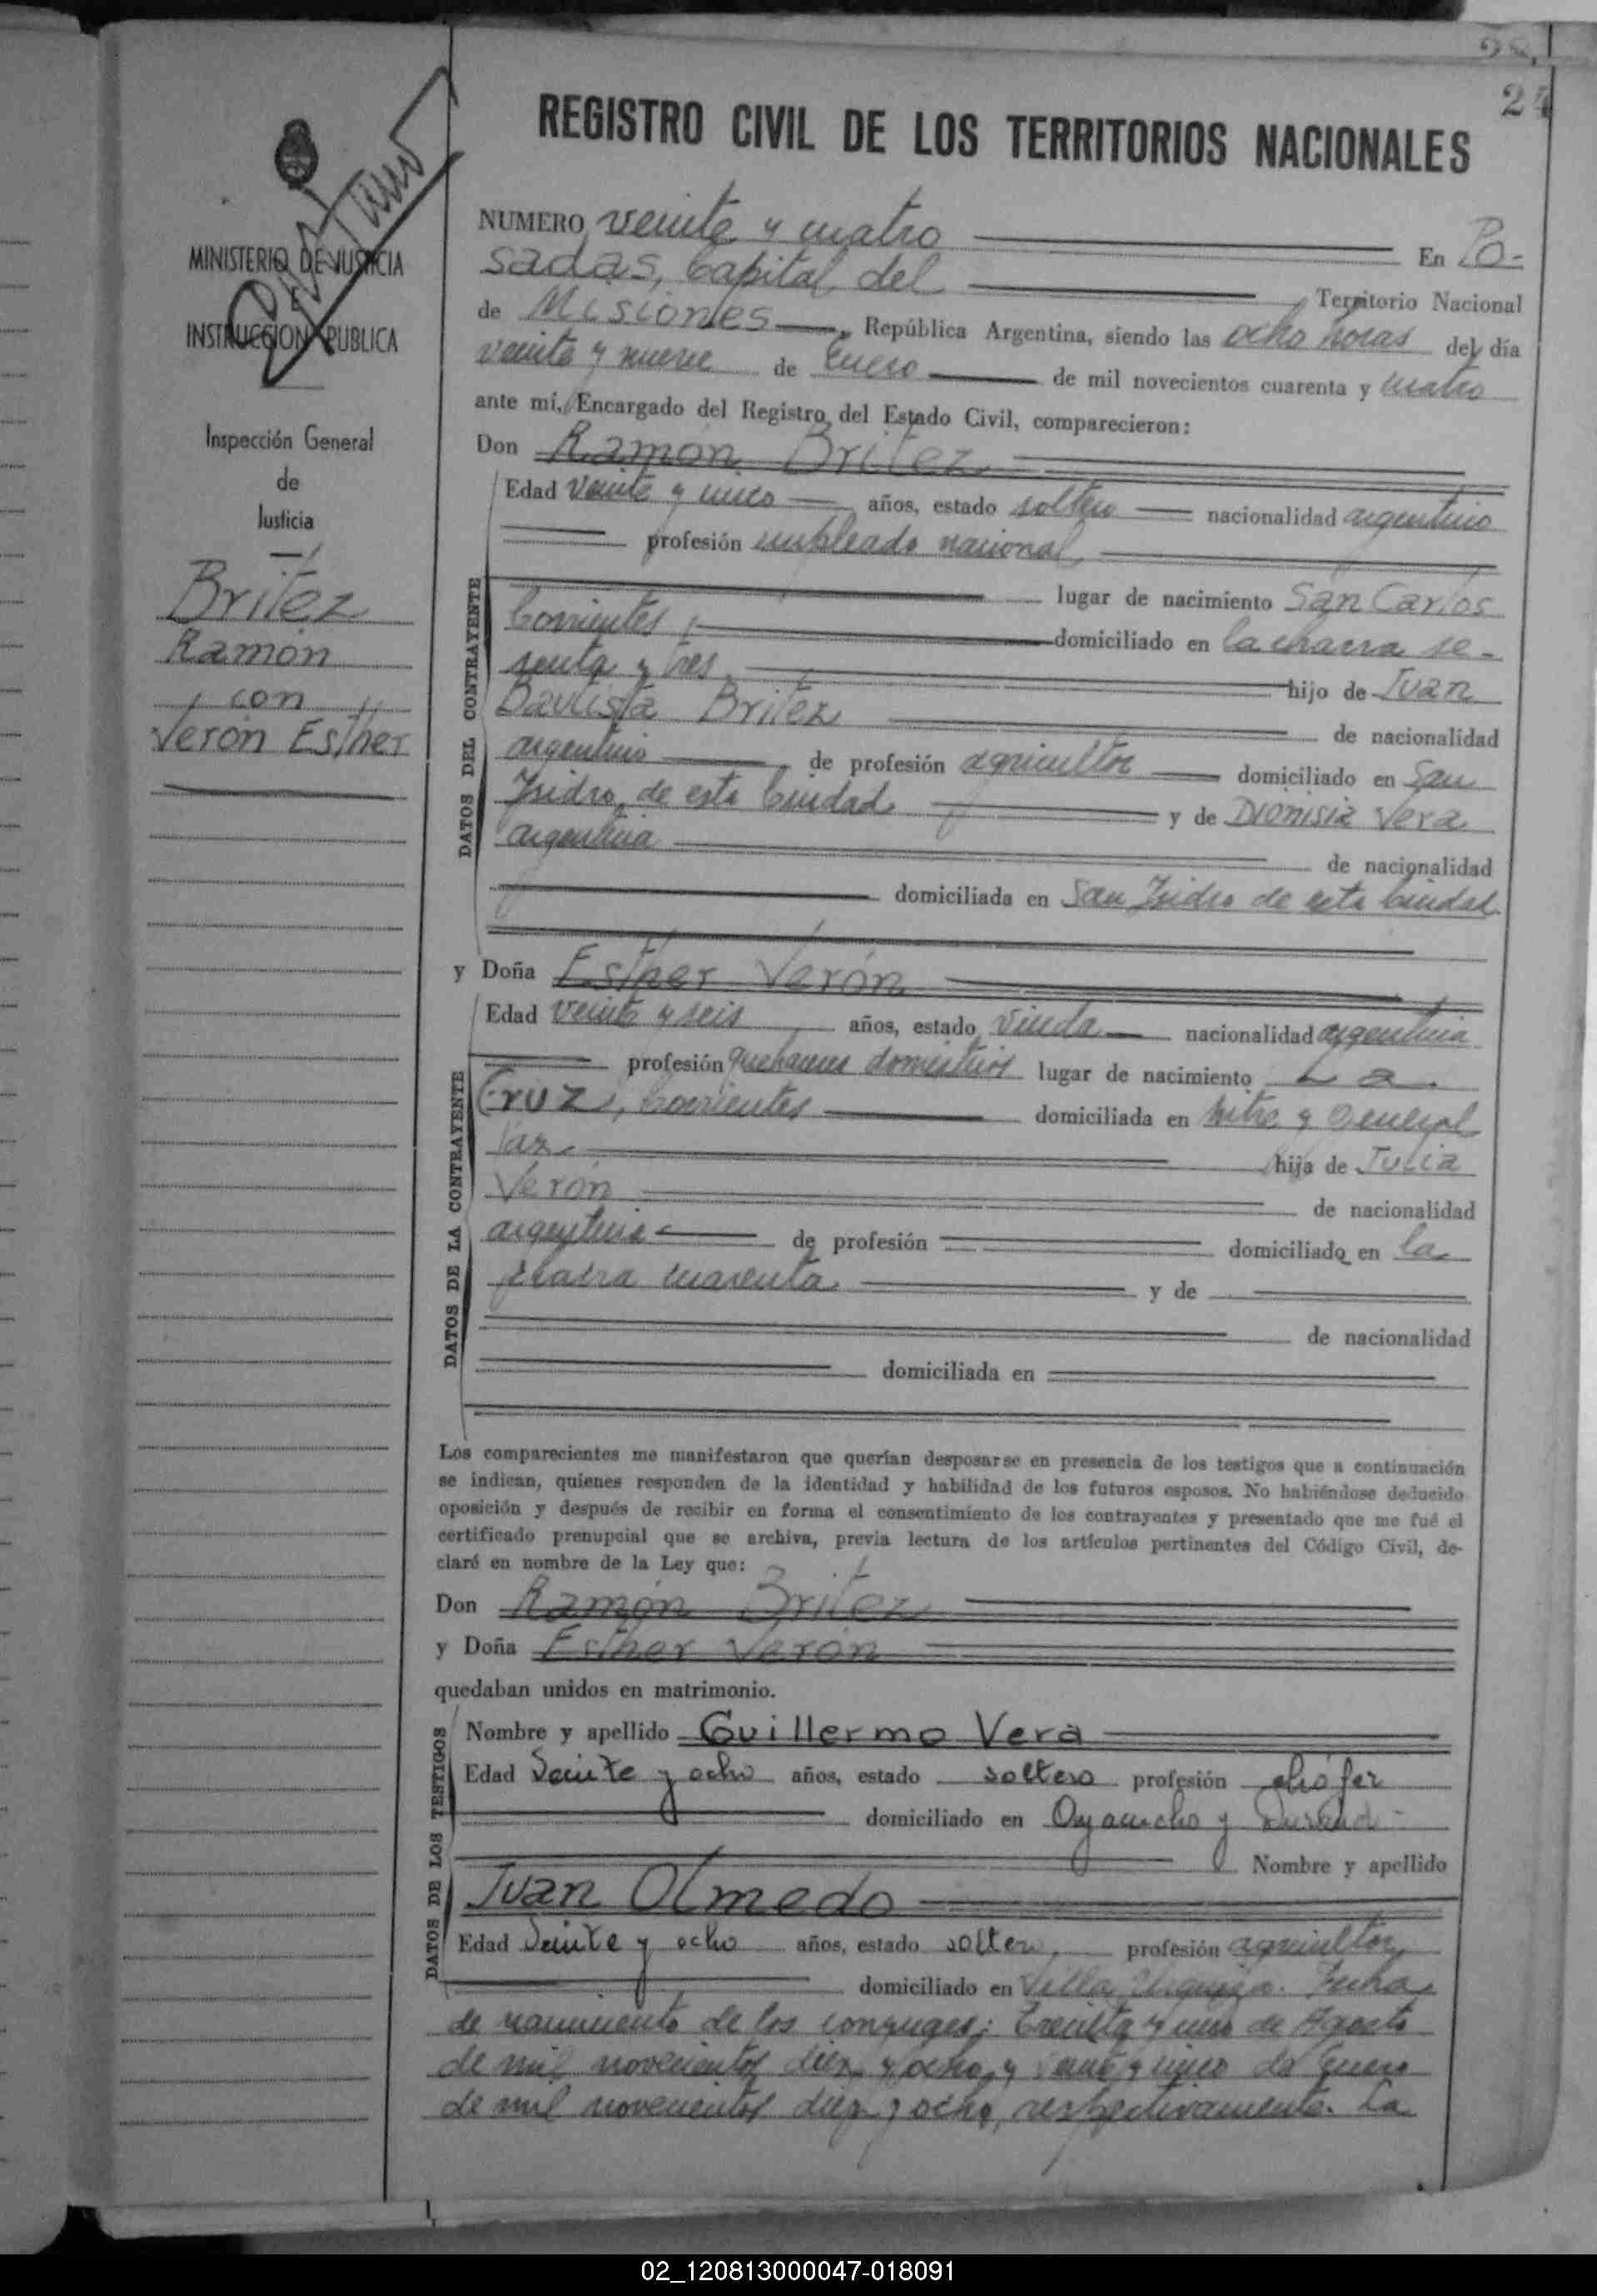 24
REGISTRO CIVIL DE LOS TERRITORIOS NACIONALES
MINISTERIO DE JUSTICIA
E
INSTRUCCION PUBLICA
Inspección General
de
Justicia
Britez
Ramón
con
Verón Esther
NUMERO veinte y cuatro En Po-
sadas, Capital del Territorio Nacional
de Misiones, República Argentina, siendo las ocho horas del día
veinte y nueve de Enero de mil novecientos cuarenta y cuatro
ante mí, Encargado del Registro del Estado Civil, comparecieron:
Don Ramón Britez
DATOS DEL CONTRAYENTE
Edad veinte y cinco años, estado soltero nacionalidad argentino
profesión empleado nacional,
lugar de nacimiento San Carlos
Corrientes, domiciliado en la chacra se-
senta y tres hijo de Juan
Bautista Britez de nacionalidad
argentino de profesión agricultor domiciliado en San
Isidro, de esta Ciudad y de Dionisia Vera
argentina de nacionalidad
domiciliada en San Isidro de esta Ciudad
y Doña Esther Verón
DATOS DE LA CONTRAYENTE
Edad veinte y seis años, estado viuda nacionalidad argentina
profesión quehaceres domésticos lugar de nacimiento La
Cruz, Corrientes domiciliada en Mitre y General
Paz hija de Julia
Verón de nacionalidad
argentina de profesión domiciliado en la
chacra cuarenta y de
de nacionalidad
domiciliada en
Los comparecientes me manifestaron que querían desposarse en presencia de los testigos que a continuación
se indican, quienes responden de la identidad y habilidad de los futuros esposos. No habiéndose deducido
oposición y después de recibir en forma el consentimiento de los contrayentes y presentado que me fué el
certificado prenupcial que se archiva, previa lectura de los artículos pertinentes del Código Civil, de-
claré en nombre de la Ley que:
Don Ramón Britez
y Doña Esther Verón
quedaban unidos en matrimonio.
DATOS DE LOS TESTIGOS
Nombre y apellido Guillermo Vera
Edad veinte y ocho años, estado soltero profesión chófer
domiciliado en Ayacucho y
Nombre y apellido
Juan Olmedo
Edad veinte y ocho años, estado soltero, profesión agricultor,
domiciliado en Villa Urquiza. Fecha
de nacimiento de los conyuges; treinta y uno de Agosto
de mil novecientos diez y ocho, y veinte y cinco de Enero
de mil novecientos diez y ocho, respectivamente. La
02_120813000047-018091